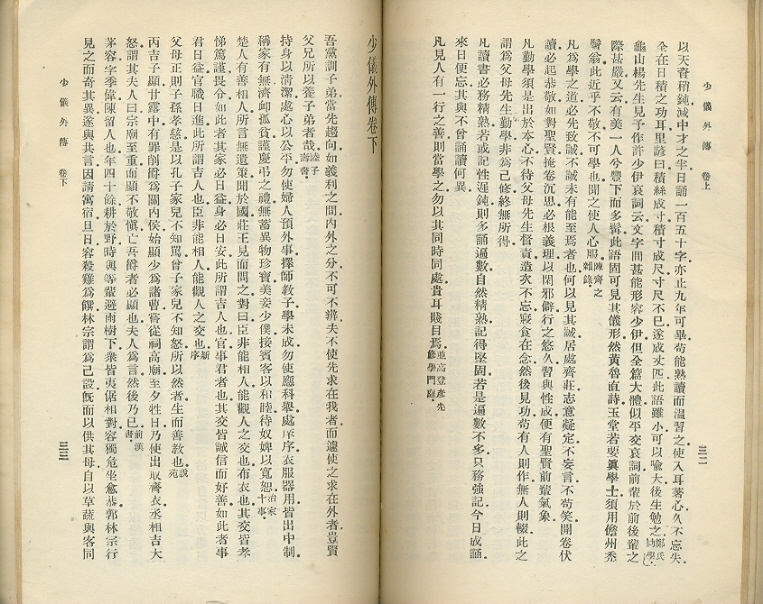 少儀外傳　卷上
三二
以天資稍鈍減中才之半日誦一百五十字亦止九年可畢苟能熟讀而溫習之使入耳著心久不忘失
全在日積之功耳里諺曰積絲成寸積寸成尺寸尺不已遂成丈匹此語雖小可以喻大後生勉之鄭氏勸學
龜山楊先生見予作許少伊哀詞云文字間甚能形容少伊但全篇大體似平交哀詞前輩於前後輩之
際甚嚴又云有美一人兮豐下而多髯此語固可見其儀形然黃魯直詩玉堂若要眞學士須用儋州禿
鬢翁此近乎不敬不可學也聞之使人心服陳齊之雜錄
凡爲學之道必先致誠不誠未有能至焉者也何以見其誠居處齊莊志意凝定不妄言不苟笑開卷伏
讀必起恭敬如對聖賢掩卷沉思必根義理以閑邪僻行之悠久習與性成便有聖賢前輩氣象
凡勤學須是出於本心不待父母先生督責造次不忘寢食在念然後見功苟有人則作無人則輟此之
謂爲父母先生勤學非爲己修終無所得
凡讀書必務精熟若或記性遲鈍則多誦遍數自然精熟記得堅固若是遍數不多只務強記今日成誦
來日便忘其與不曾誦讀何異
凡見人有一行之善則當學之勿以其同時同處貴耳賤目焉並高登彥先修學門庭
少儀外傳卷下
吾黨訓子弟當先趨向如義利之間內外之分不可不辨夫不使先求在我者而遽使之求在外者豈賢
父兄所以養子弟者哉陸子壽書
持身以清潔處心以公平勿使婦人預外事擇師敎子學未成勿使應科舉處庠序衣服器用皆出中制
稱家有無濟卹孤貧謹慶弔之禮無蓄異物珍寶美妾少僕接賓客以和睦待奴婢以寬恕治家十事
楚人有善相人所言無遺策聞於國莊王見而問之對曰臣非能相人能觀人之交也布衣也其交皆孝
悌篤謹畏令如此者其家必日益身必日安此所謂吉人也官事君者也其交皆誠信而好善如此者事
君日益官職日進此所謂吉人也臣非能相人能觀人之交也新序
父母正則子孫孝慈是以孔子家兒不知罵曾子家兒不知怒所以然者生而善敎也說苑
丙吉子顯甘露中有罪削爵爲關內侯始顯少爲諸曹嘗從祠高廟至夕牲日乃使出取齋衣丞相吉大
怒謂其夫人曰宗廟至重而顯不敬愼亡吾爵者必顯也夫人爲言然後乃已前漢書
茅容字季偉陳留人也年四十餘耕於野時與等輩避雨樹下衆皆夷踞相對容獨危坐愈恭郭林宗行
見之而奇其異遂與共言因請寓宿旦日容殺雞爲饌林宗謂爲己設旣而以供其母自以草蔬與客同
少儀外傳　卷下
三三